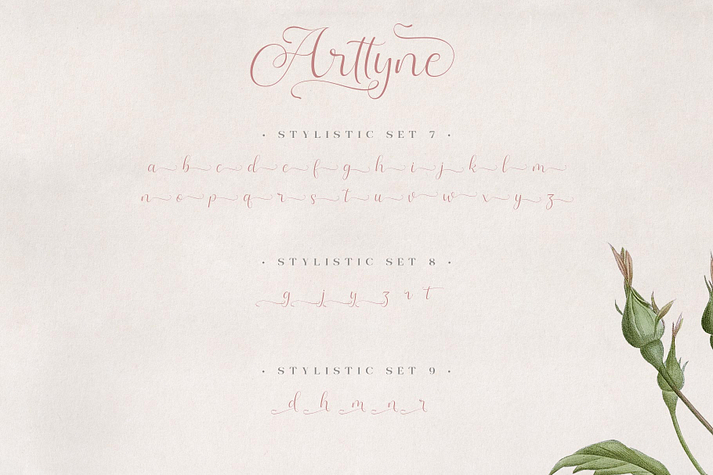 Arttyne
• STYLISTIC SET 7 •
a b c d e f g h i j k l m
n o p q r s t u v w x y z
• STYLISTIC SET 8 •
g j y z r t
• STYLISTIC SET 9 •
d h m n r